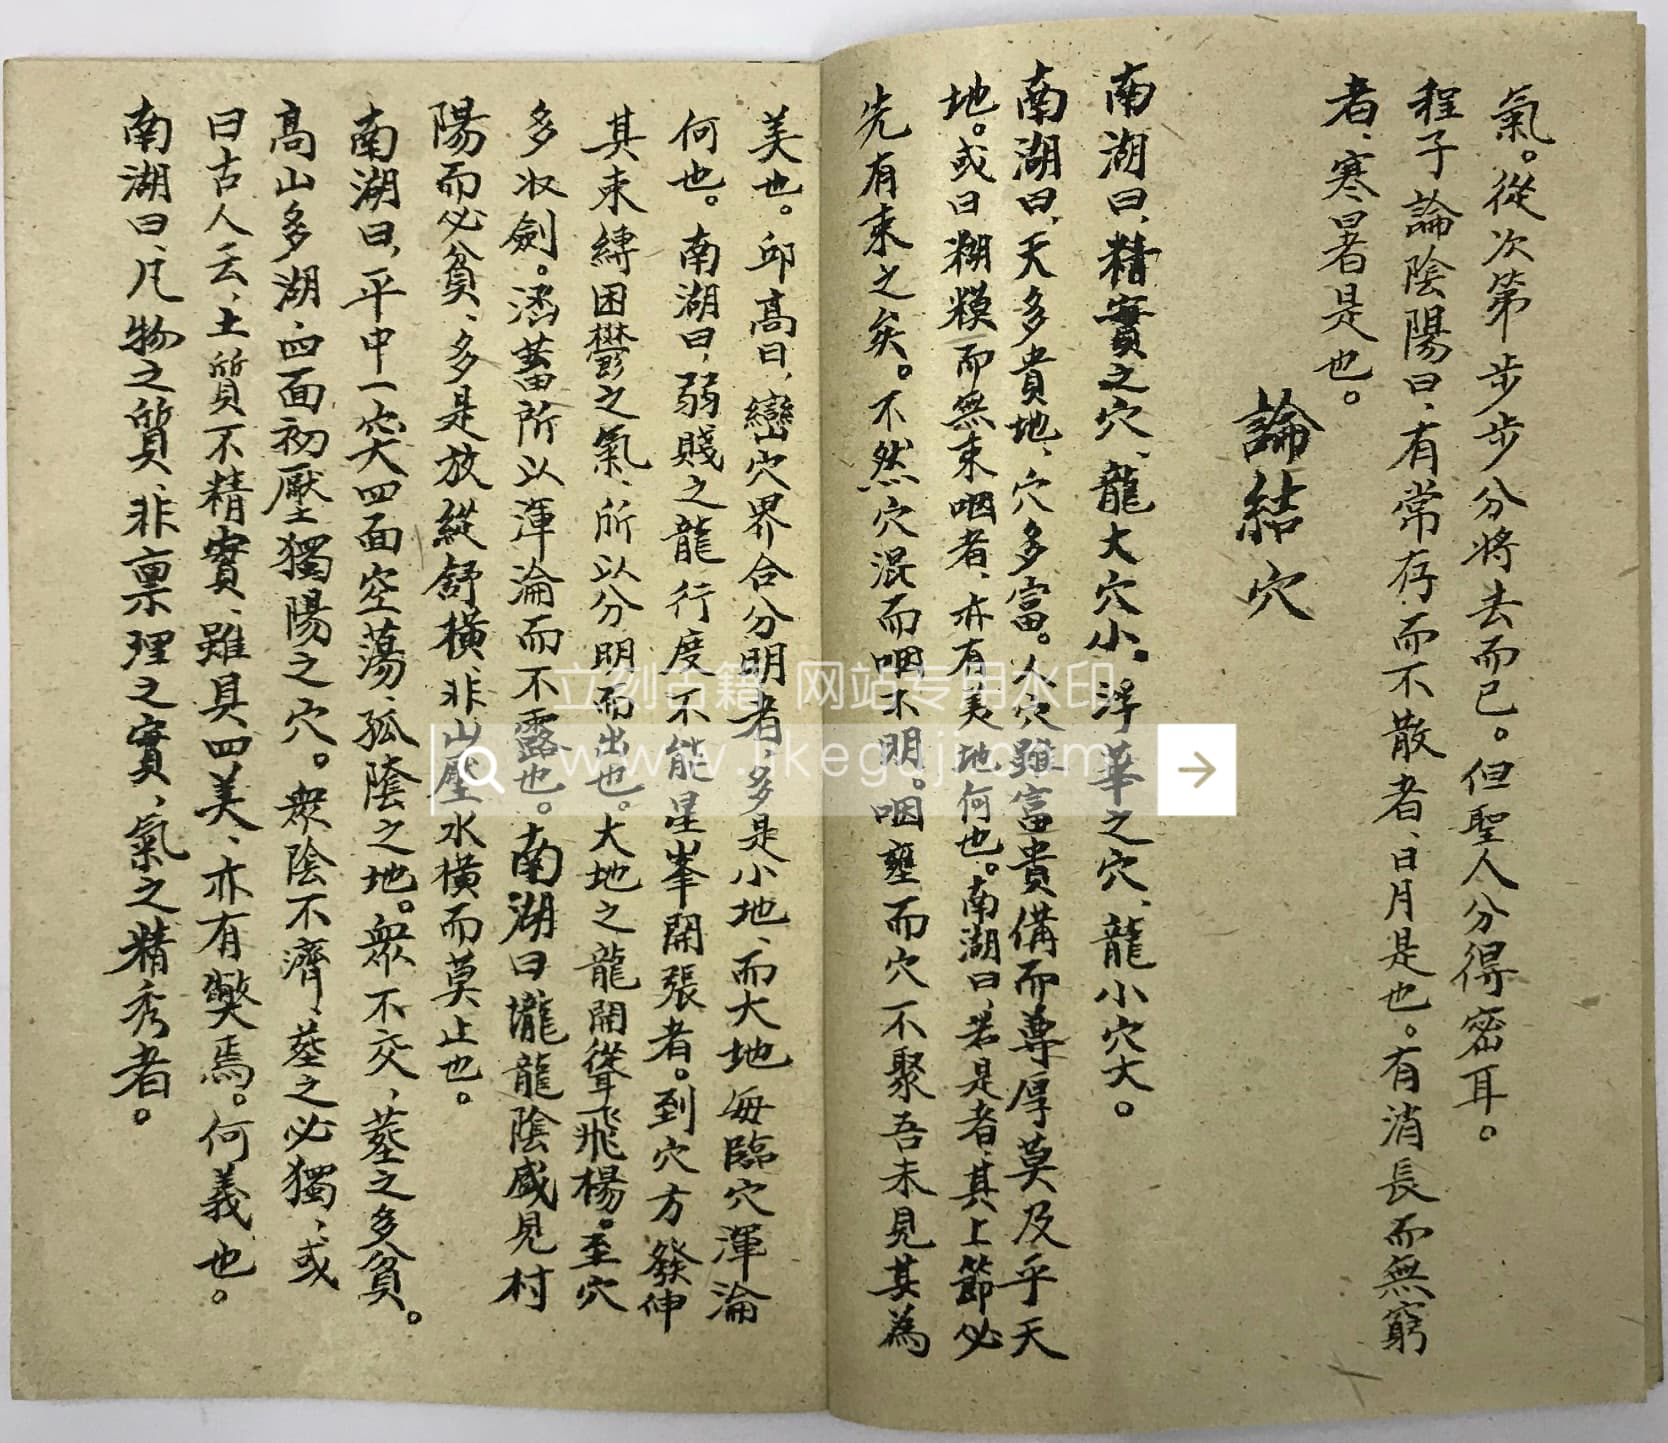 氣。從次第步步分將去而已。但聖人分得密耳。
程子論陰陽曰、有常存而不散者、日月是也。有消長而無窮
者、寒暑者是也。
論結穴
南湖曰、精實之穴、龍大穴小。浮華之穴、龍小穴大。
南湖曰、天多貴地、穴多富。人穴雖富貴備而尊厚莫及乎天
地。或曰糊糢而無束咽者、亦有美地何也。南湖曰、若是者、其上節必
先有束之矣。不然穴混而咽不明。咽壅而穴不聚吾未見其為
美也。邱高曰、巒穴界合分明者、多是小地、而大地每臨穴渾淪
何也。南湖曰、弱賤之龍行度不能星峯開張者。到穴方發伸
其束縛困鬱之氣、所以分明而出也。大地之龍開聳飛楊。至穴
多收劍。涵蓄所以渾淪而不露也。南湖曰、壠龍陰盛見村
陽而必貧、多是放縱舒橫、非山壓水橫而莫止也。
南湖曰、平中一突四面空蕩、孤陰之地。衆不交、塟之多貧。
高山多湖、四面初壓獨陽之穴。衆陰不濟、塟之必獨、或
曰古人云、土質不精實、雖具四美、亦有獘焉。何義也。
南湖曰、凡物之質、非稟理之實、氣之精秀者。
立刻古籍 网站专用水印
www.likeguji.com